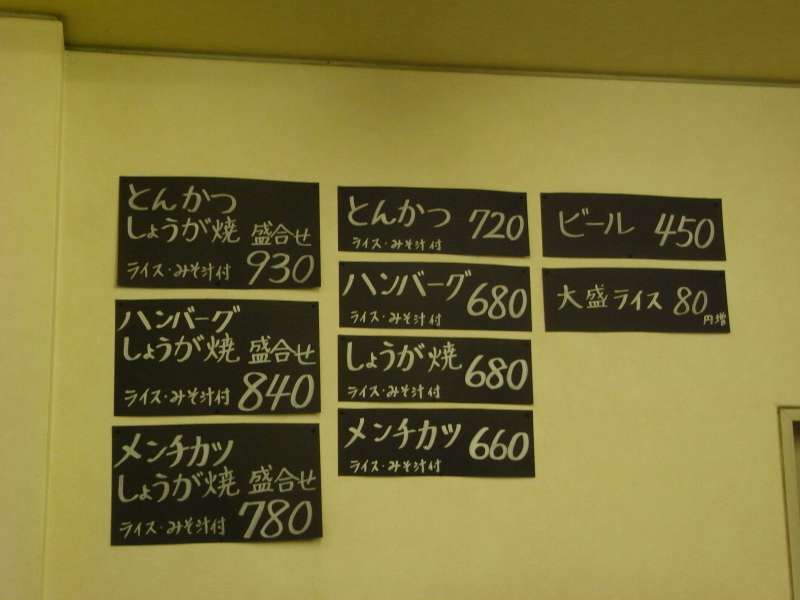 とんかつ
しょうが焼 盛合せ
ライス・みそ汁付 930
ハンバーグ
しょうが焼 盛合せ
ライス・みそ汁付 840
メンチカツ
しょうが焼 盛合せ
ライス・みそ汁付 780
とんかつ 720
ライス・みそ汁付
ハンバーグ 680
ライス・みそ汁付
しょうが焼 680
ライス・みそ汁付
メンチカツ 660
ライス・みそ汁付
ビール 450
大盛ライス 80
円増